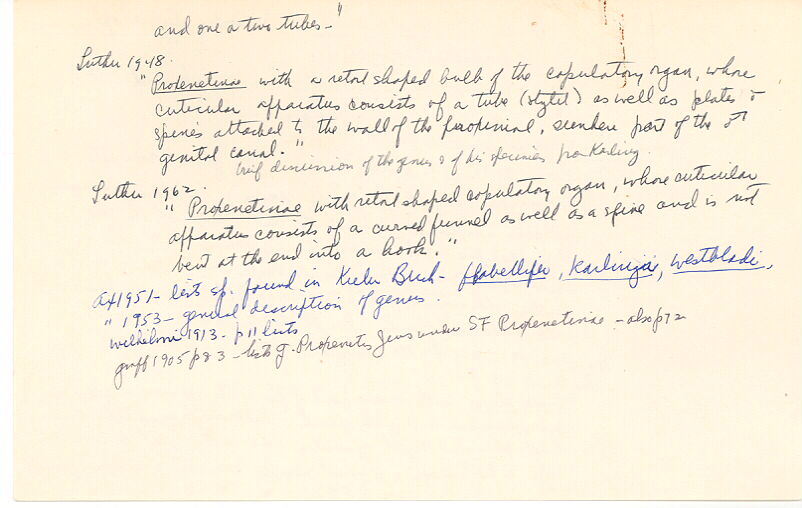 and one or two tubes-"
Luther 1948.
"Proxenetinae with a retort shaped bulb of the copulatory organ, whose
cuticular apparatus consists of a tube (stylet) as well as plates &
spines attached to the wall of the peropinial, seendere part of the ♂
genital canal."
brief dimension of the genus & of his species from Karling.
Luther 1962.
"Proxenetinae with retort shaped copulatory organ, whose cuticular
apparatus consists of a curved funnel as well as a spine and is not
bent at the end into a hook."
Ax 1951- lists sp. found in Kieler Buch- flabellifer, karlingi, westbladi,
" 1953- general description of genus.
Wilhelmi 1913- p 11 lists
Graff 1905 p83 - lists g. Proxenetes Jens under SF Proxenetinae - also p72